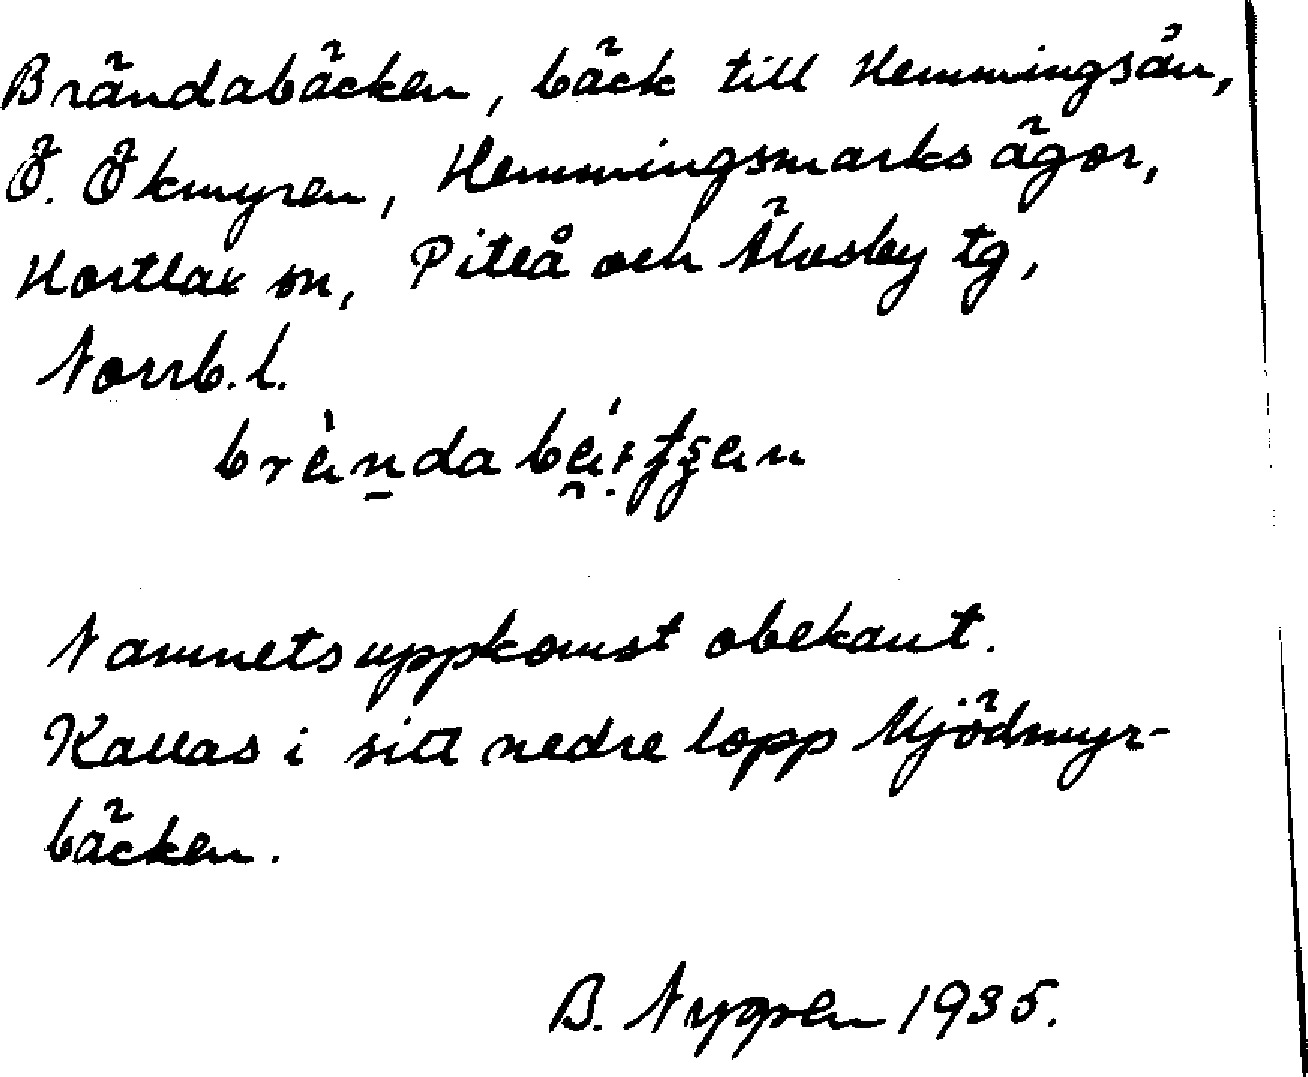 Brändabäcken, bäck till Hemmingsån,
Ö. Ökmyren, Hemmingsmarks ägor,
Hortlax sn, Piteå och Älvsby tg,
Norrb. l.
Namnets uppkomst obekant.
Kallas i sitt nedre lopp Mjödmyr-
bäcken.
B. Nygren 1935.